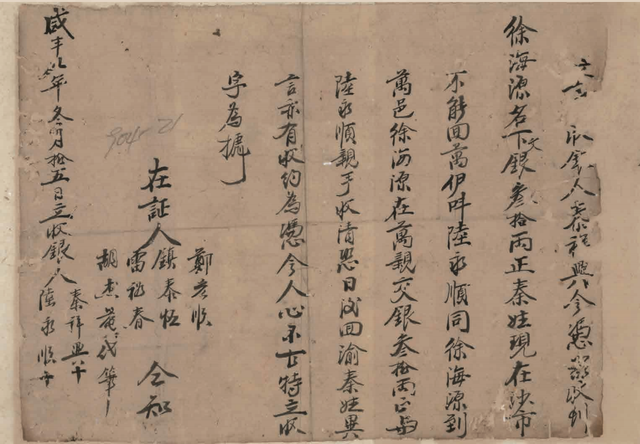 立合收銀人秦祥興今憑衆收到
徐海源名下文銀叁拾兩正秦姓現在沙市
不能回萬伊叫陸永順同徐海源到
萬邑徐海源在萬親交銀叁拾兩正与
陸永順親手收清恐日後回渝秦姓異
言亦有收約為憑今人心不古特立收
字為據
鄭老順
鎮泰恒
在証人雷祖春仝知
胡春苑代筆
咸丰九年冬月拾五日立收銀人秦祥興十
陸永順十
904-21